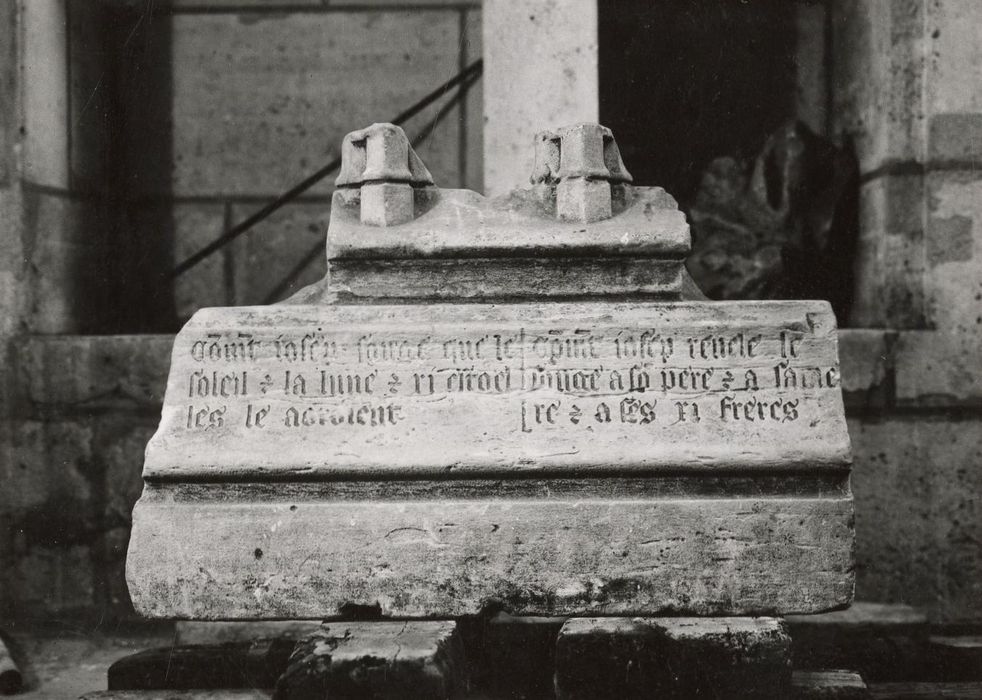 Com̃t iosep songe que le
soleil ⁊ la lune ⁊ xi estoel
les le aoroient
Com̃t iosep revele le
songe a sõ pere ⁊ a sa me
re ⁊ a ses xi freres